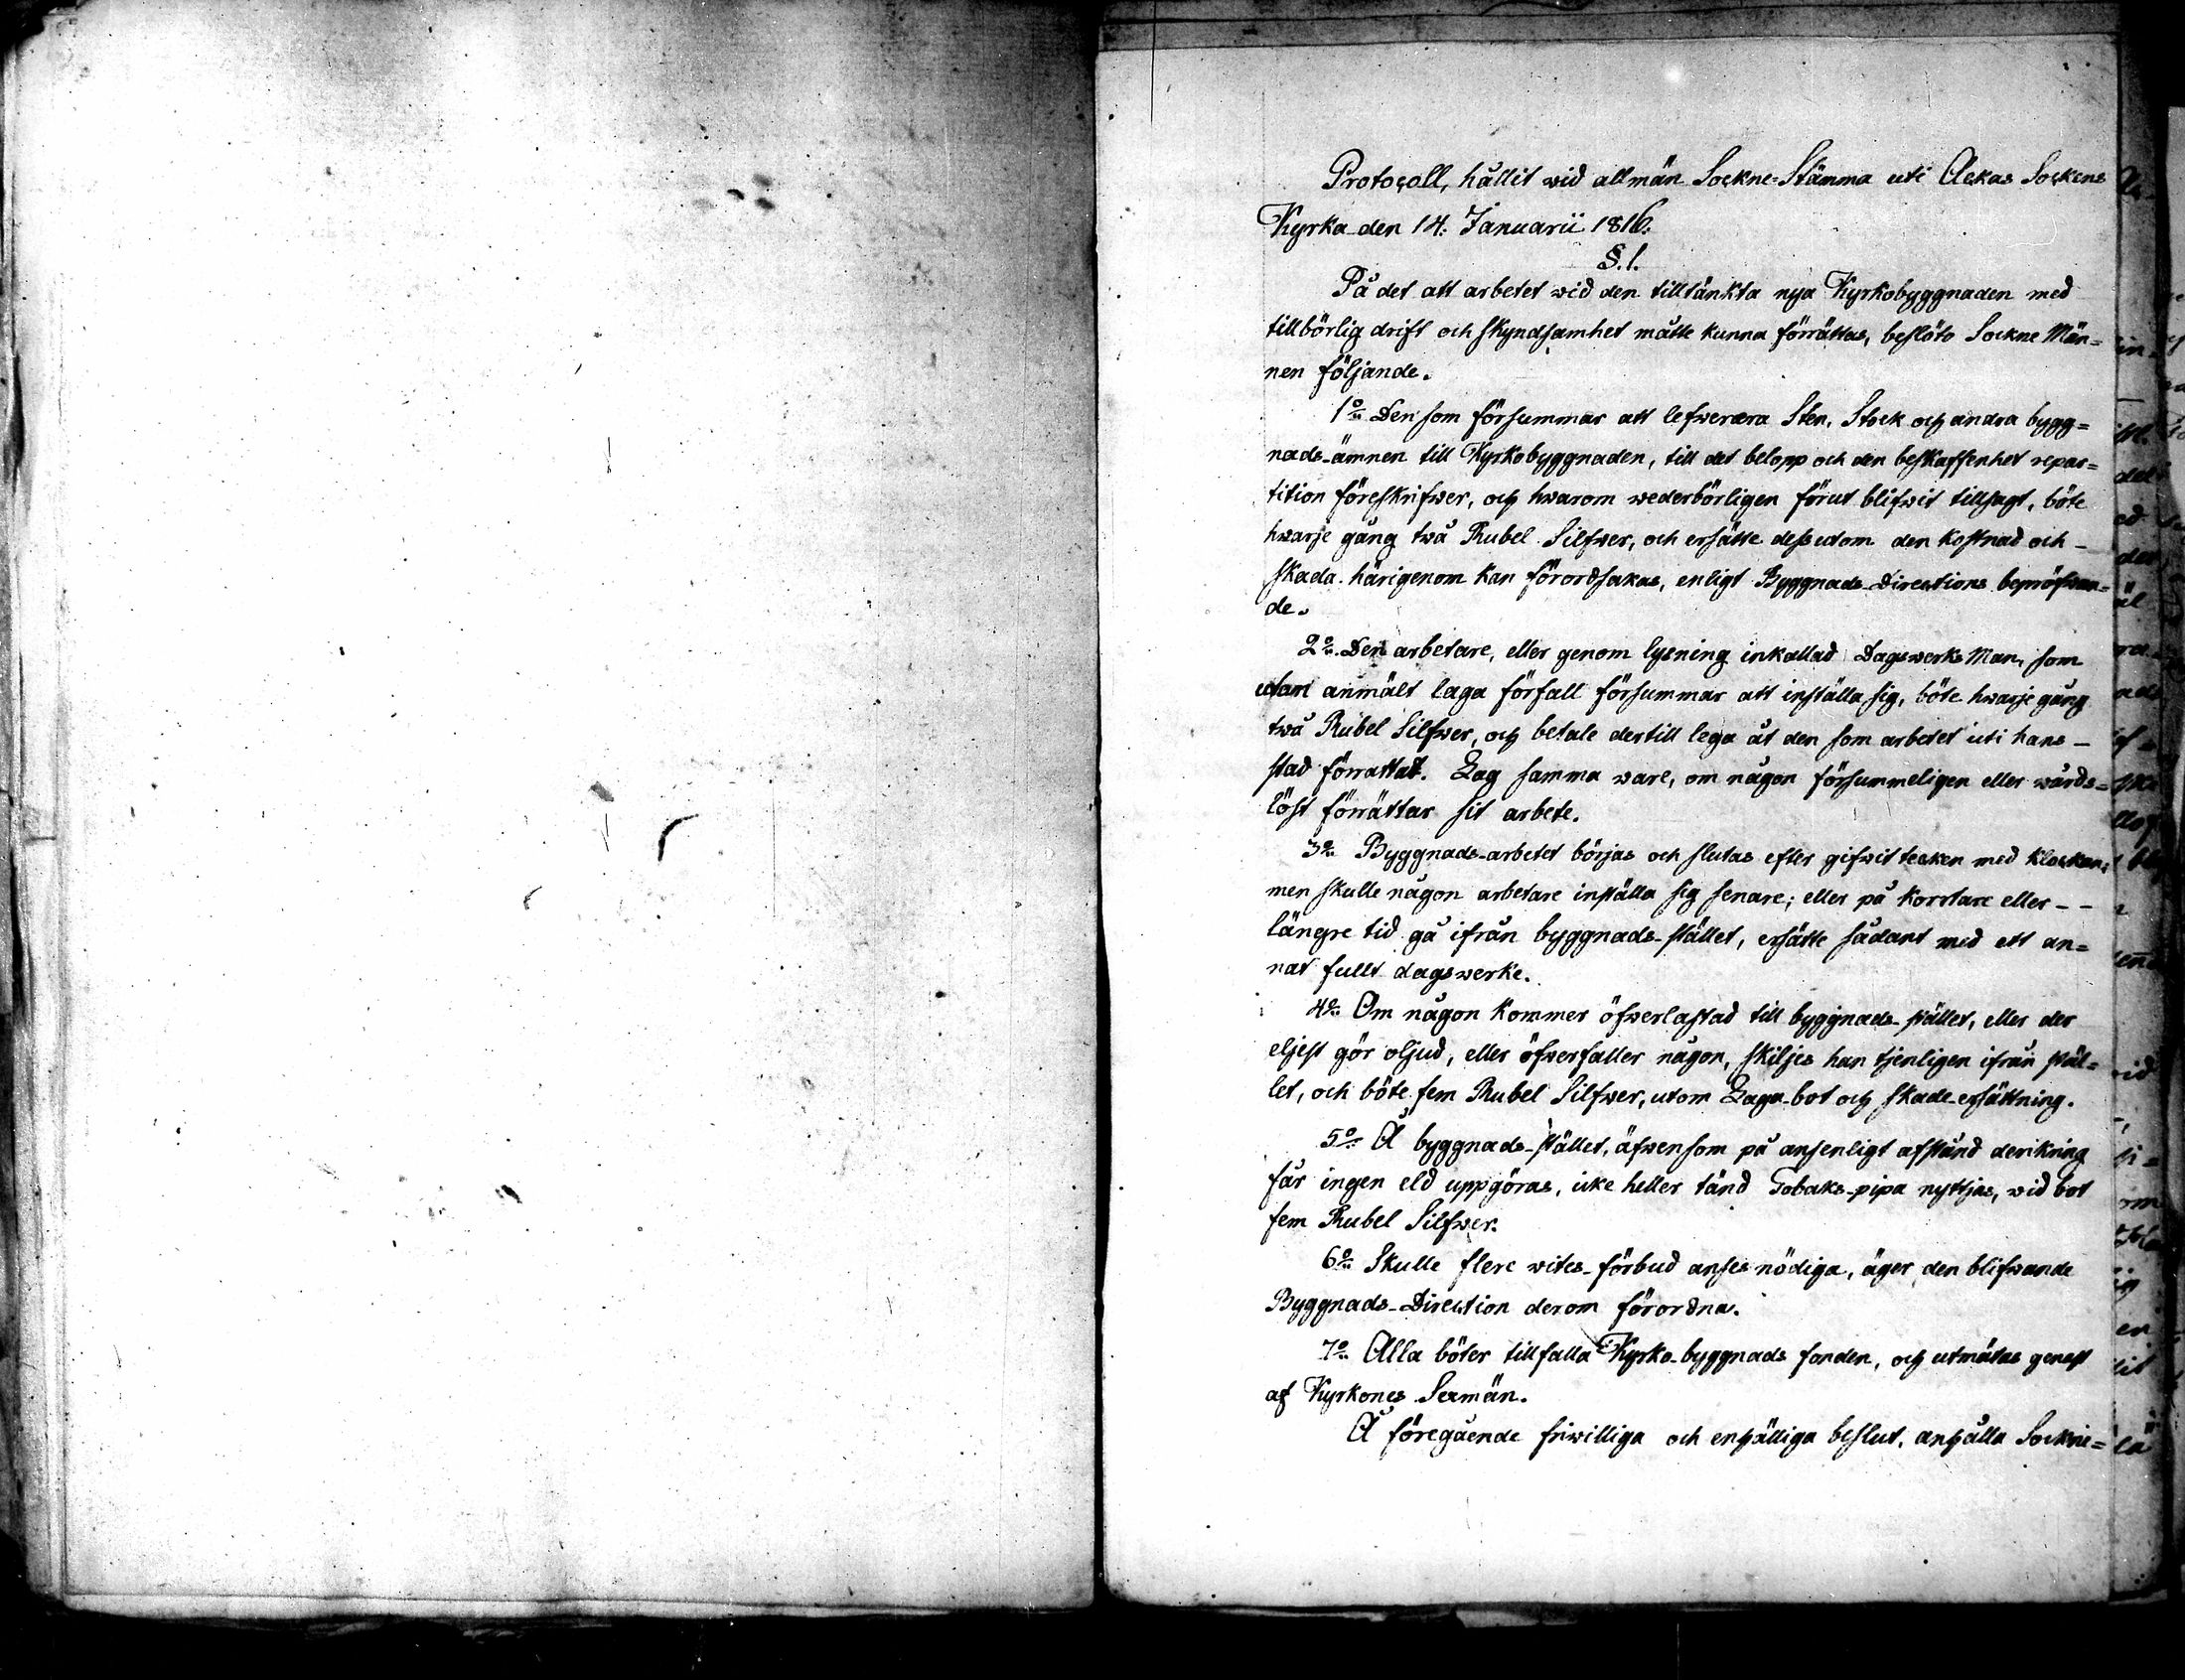 Protocoll, hållit wid allmän Sockne-Stämma uti Ackas Sockens
Kyrka den 14. Januarii 1816.
§. 1.
På det att arbetet wid den tilltänkta nya Kyrkobyggnaden med
tillbörlig drift och skyndsamhet måtte kunna förrättas, beslöto Sockne Män=
nen följande.
1:o Den som försummar att lefwerera Sten, Stock och andra bygg=
nads-ämnen till Kyrkobyggnaden, till det belopp och den beskaffenhet repar=
tition föreskrifwer, och hwarom wederbörligen förut blifwit tillsagt, böte
hwarje gång twå Rubel Silfwer, och ersätte dessutom den kostnad och -
skada härigenom kan förordsakas, enligt Byggnads-Directions bepröfwan=
de.
2:o Den arbetare, eller genom lysning inkallad Dagswerks Man, som
utan anmält laga förfall försummar att inställa sig, böte hwarje gång
twå Rubel Silfwer, och betale dertill lega åt den som arbetet uti hans -
stad förrattat. Lag samma ware, om någon försummeligen eller wårds=
löst förrättar sit arbete.
3:o Byggnads-arbetet börjas och slutas efter gifwit tecken med klockan;
men skulle någon arbetare inställa sig senare; eller på kortare eller - -
längre tid gå ifrån byggnads-stället, ersätte sådant med ett an=
nat fullt dagswerke.
4:o Om någon kommer öfwerlastad till byggnads-stället, eller der
eljest gör oljud, eller öfwerfaller någon, skiljes han tjenligen ifrån stäl=
let, och böte fem Rubel Silfwer, utom Laga-bot och skade-ersättning.
5:o Å byggnads-stället, äfwensom på ansenligt afstånd derikring
får ingen eld uppgöras, icke heller tänd Tobaks-pipa nyttjas, wid bot
fem Rubel Silfwer.
6:o Skulle flere wites-förbud anses nödiga, äger den blifwande
Byggnads-Direction derom förordna.
7:o Alla böter tillfalla Kyrko-byggnads fonden, och utmätas genast
af Kyrkones Sexmän.
Å föregående friwilliga och enhälliga beslut, anhålla Sockne=